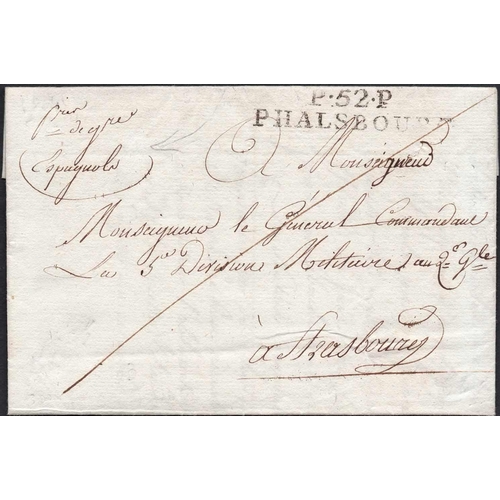 P·52·P
PHALSBOURG
Pris
de gre
Espagnols
A Monseigneur
Monseigneur le Général Commandant
La 5e Division Militaire au Qer Gle
à Strasbourg